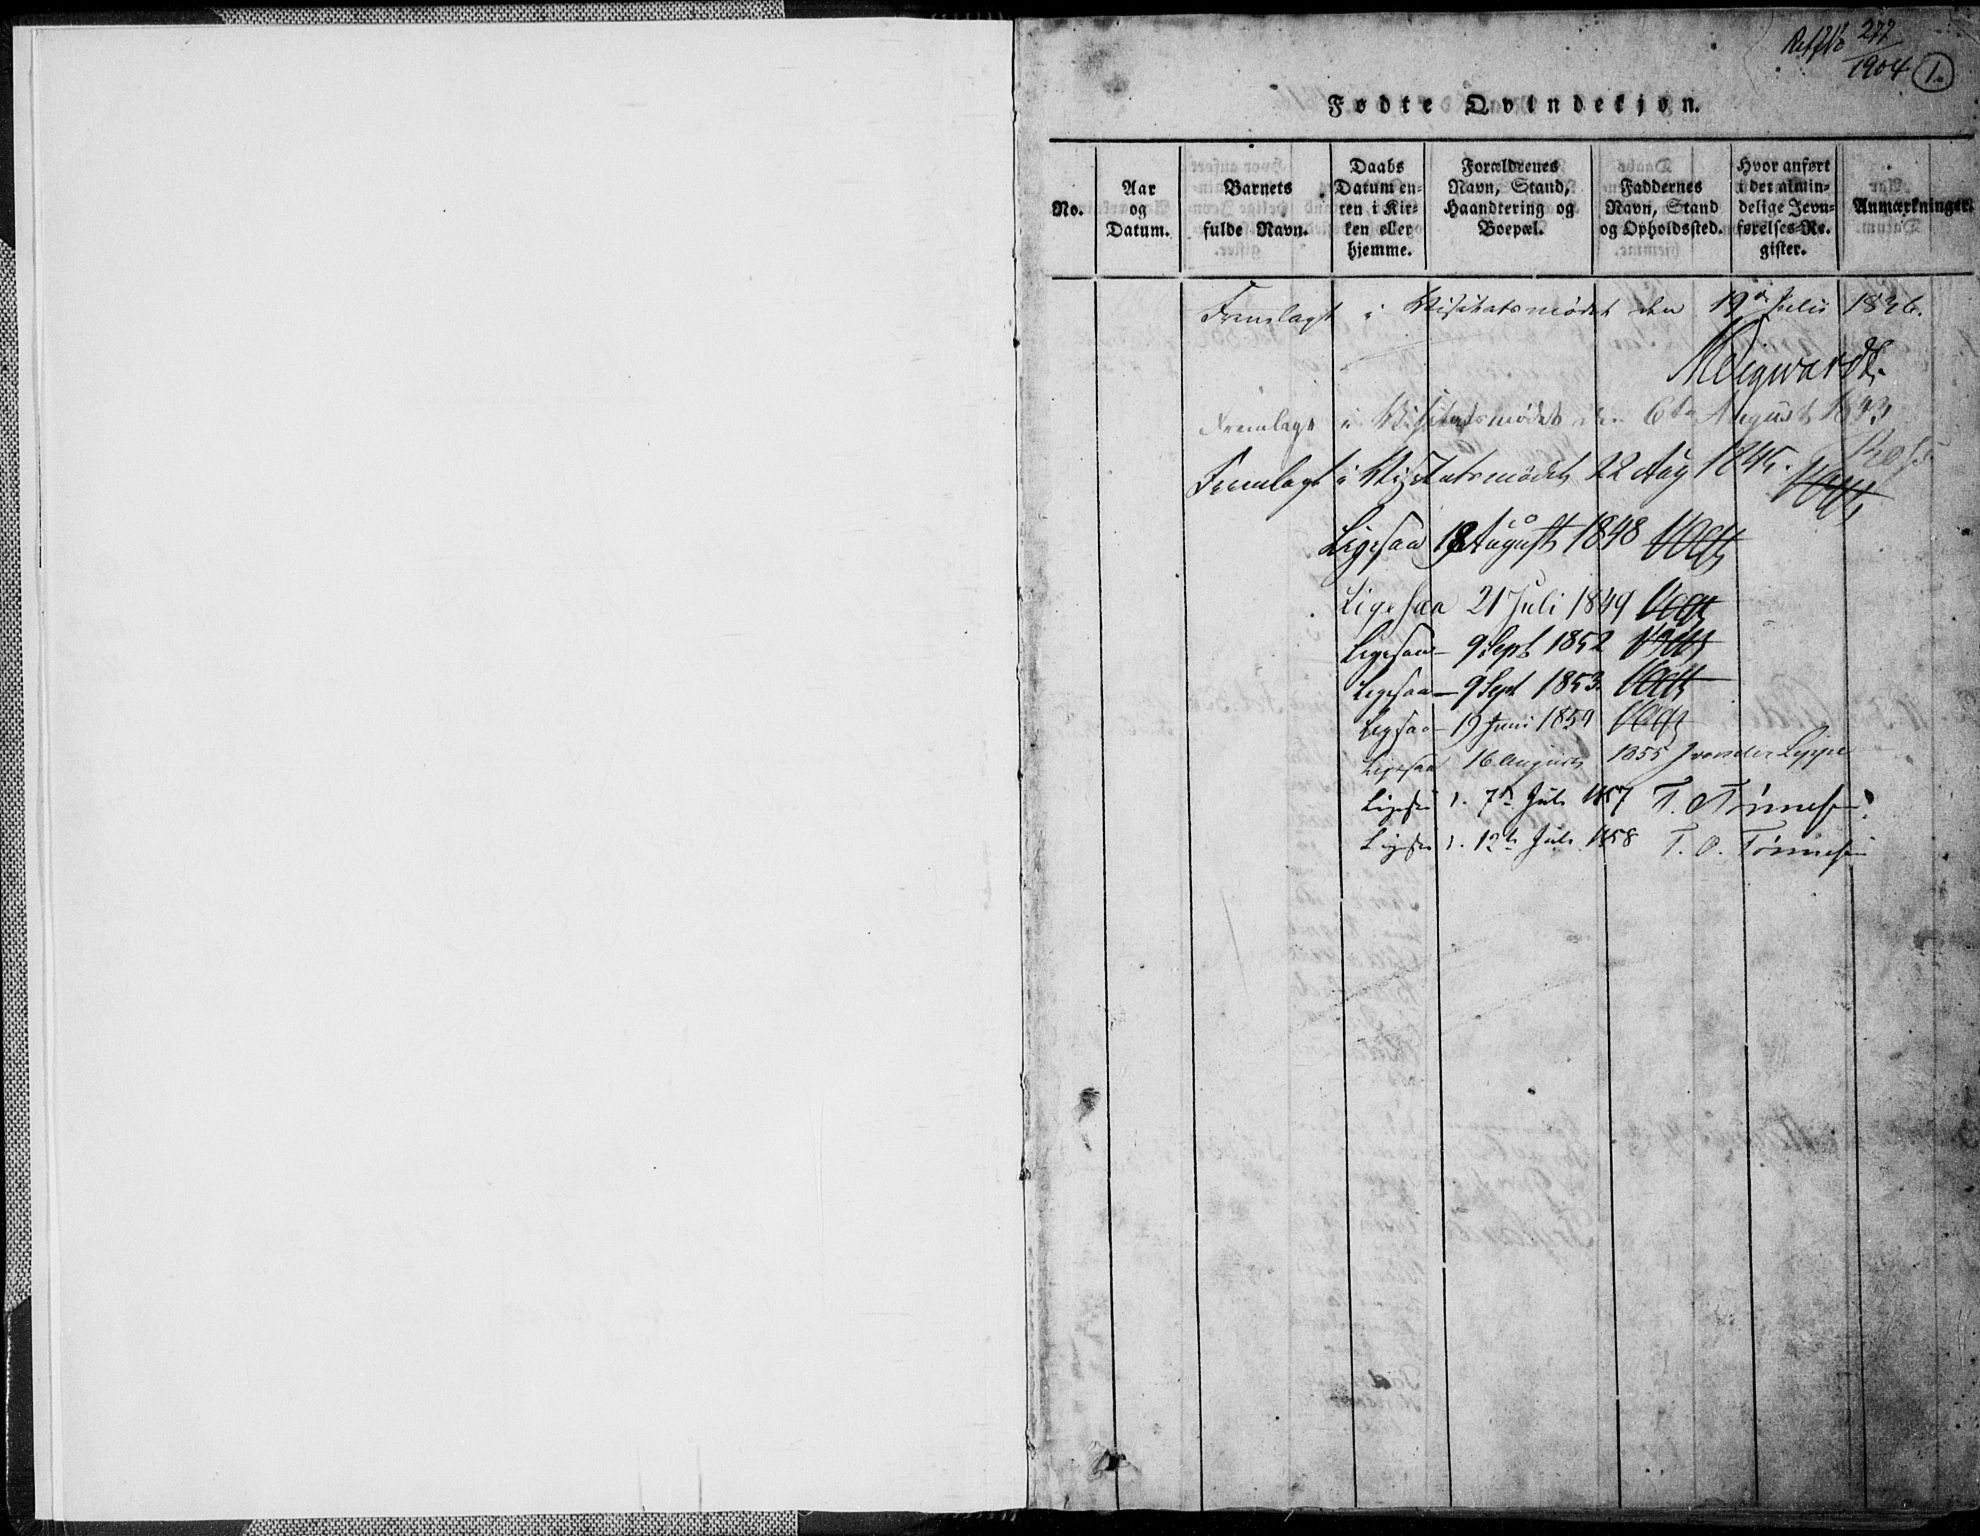 277
1904
1.
Fødte Qvindekjøn.
No.
Aar
og
Datum.
Barnets
fulde Navn.
Daabs
Datum en-
ten i Kir-
ken eller
hjemme.
Forældrenes
Navn, Stand,
Haandtering og
Boepæl.
Faddernes
Navn, Stand
og Opholdssted.
Hvor anført
i det almin-
delige Jevn-
førelses-Re-
gister.
Anmærkninger.
Fremlagt i Visitatsmødet den 19de Julii 1826.
Fremlagt i Visitatsmødet den 6te August 1833
Fremlagt i Visitatsmødet 22 Aug 1845.
Ligesaa 18 August 1848
Ligesaa 21 Juli 1849
Ligesaa 9 Sept 1852
Ligesaa 9 Sept 1853
Ligesaa 19 Juni 1854
Ligesaa 16 August 1855 J von der Lippe
Ligesaa d. 7de Juli 1857 T. O. Tönnesen
Ligesaa d. 12te Juli 1858 T. O. Tönnesen